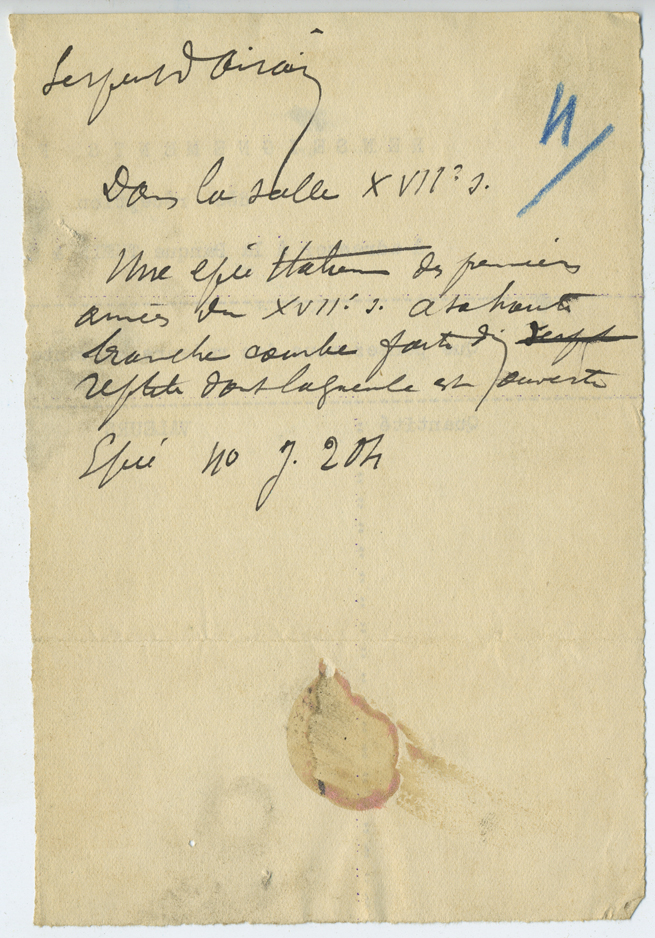 Serpent d'airain
11/
Dans la salle XVIIe s.
Une epée italienne des premiers
années du XVIIe s. a sa haute
branche courbe faite du
reptile dont la gueule est ouverte
Epée no J. 204